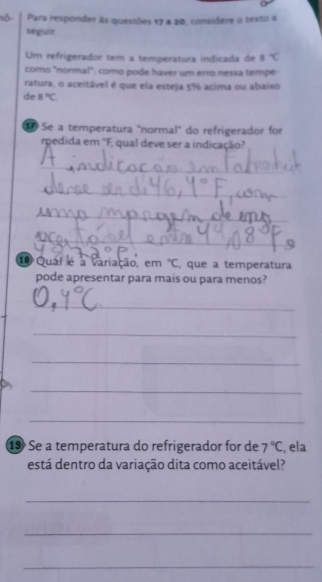 Para responder às questões 17 a 20, considere o texto a
seguir.
Um refrigerador tem a temperatura indicada de 8 °C
como "normal"; como pode haver um erro nessa tempe-
ratura, o aceitável é que ela esteja 5% acima ou abaixo
de 8 °C.
17 Se a temperatura "normal" do refrigerador for
medida em °F, qual deve ser a indicação?
A indicação em
46,4° F, com
uma margem de
18 Qual é a variação, em °C, que a temperatura
pode apresentar para mais ou para menos?
0,4°C
19 Se a temperatura do refrigerador for de 7 °C, ela
está dentro da variação dita como aceitável?